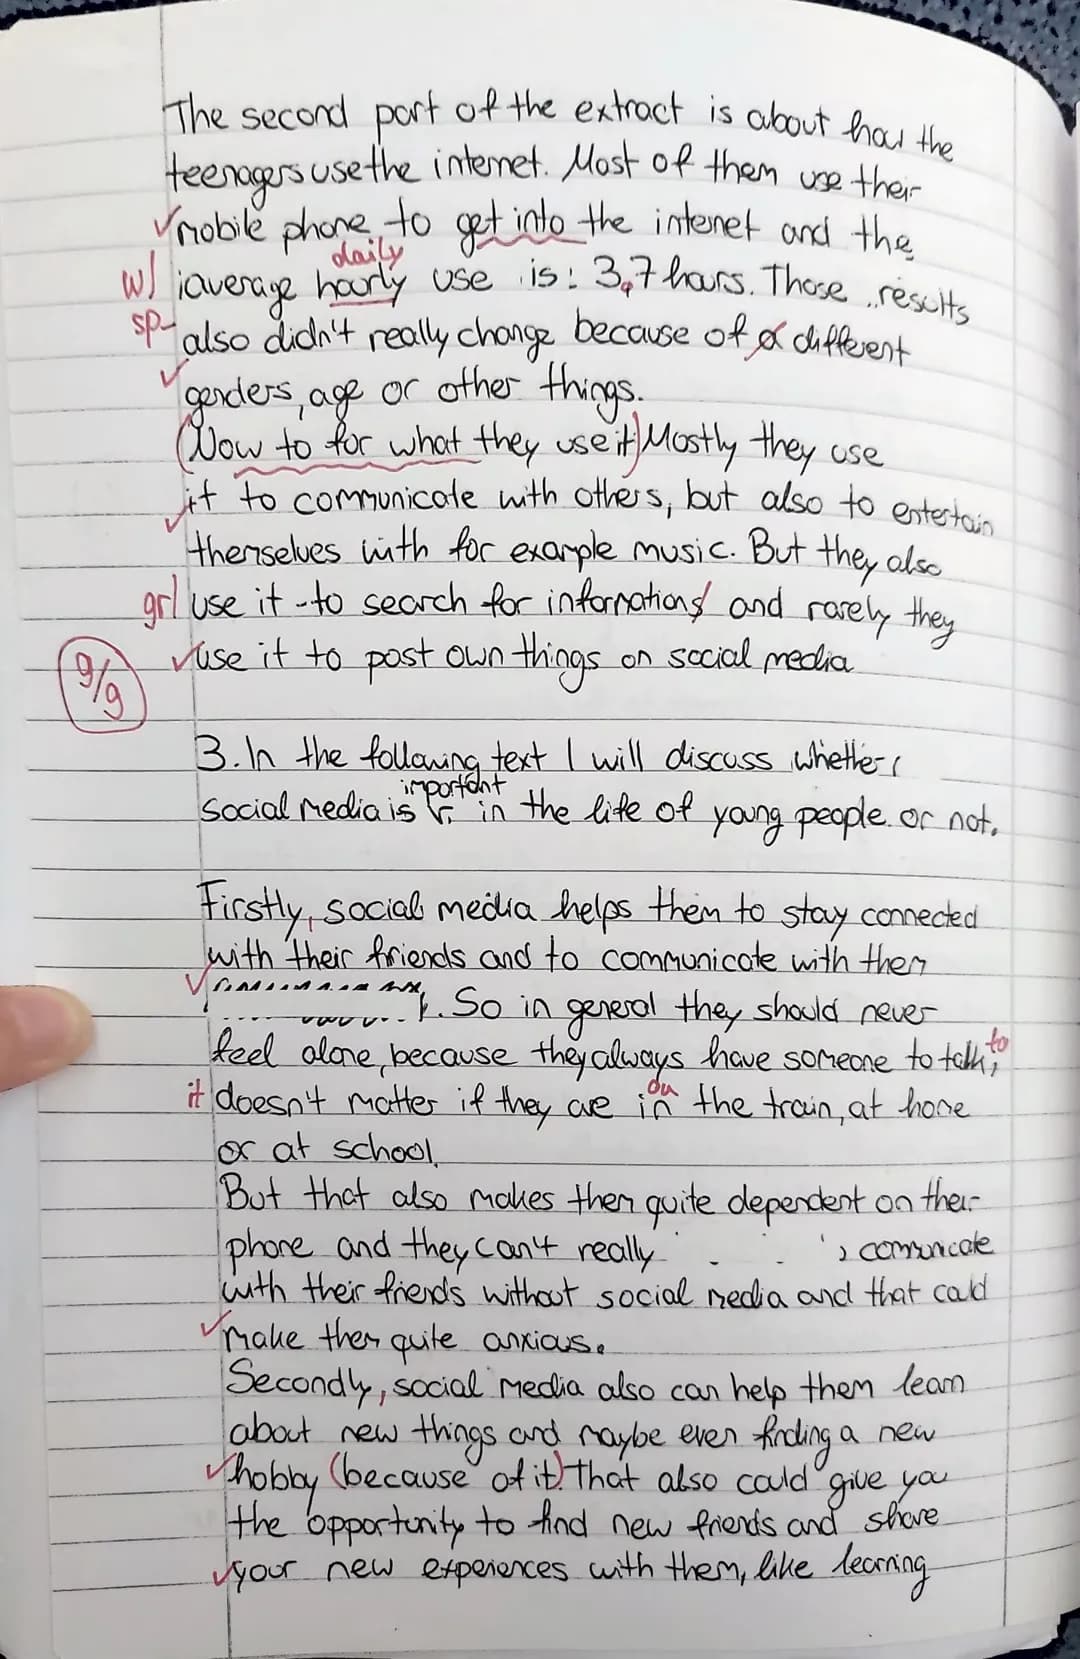 The second part of the extract is about how the
teenagers use the internet. Most of them use their
mobile phone to get into the internet and the
daily
w/ average hourly use is: 3,7 hours. Those results
sp
also didn't really change because of a different
genders, age or other things.
(Now to for what they use it) Mostly they use
it to communicate with others, but also to entertain
themselves with for example music. But they also
gr/ use it to search for informations and rarely they
use it to post own things on social media
9/9
3. In the following text I will discuss whether
important
social media is in the life of young people or not.
Firstly, social media helps them to stay connected
with their friends and to communicate with them
. So in general they should never
feel alone, because they always have someone to talk, to
it doesn't matter if they are in the train, at home
on
or at school.
But that also makes them quite dependent on their
phone and they can't really communicate
with their friends without social media and that could
make them quite anxious.
Secondly, social media also can help them learn
about new things and maybe even finding a new
hobby (because of it). That also could give you
the opportunity to find new friends and share
your new experiences with them, like learning